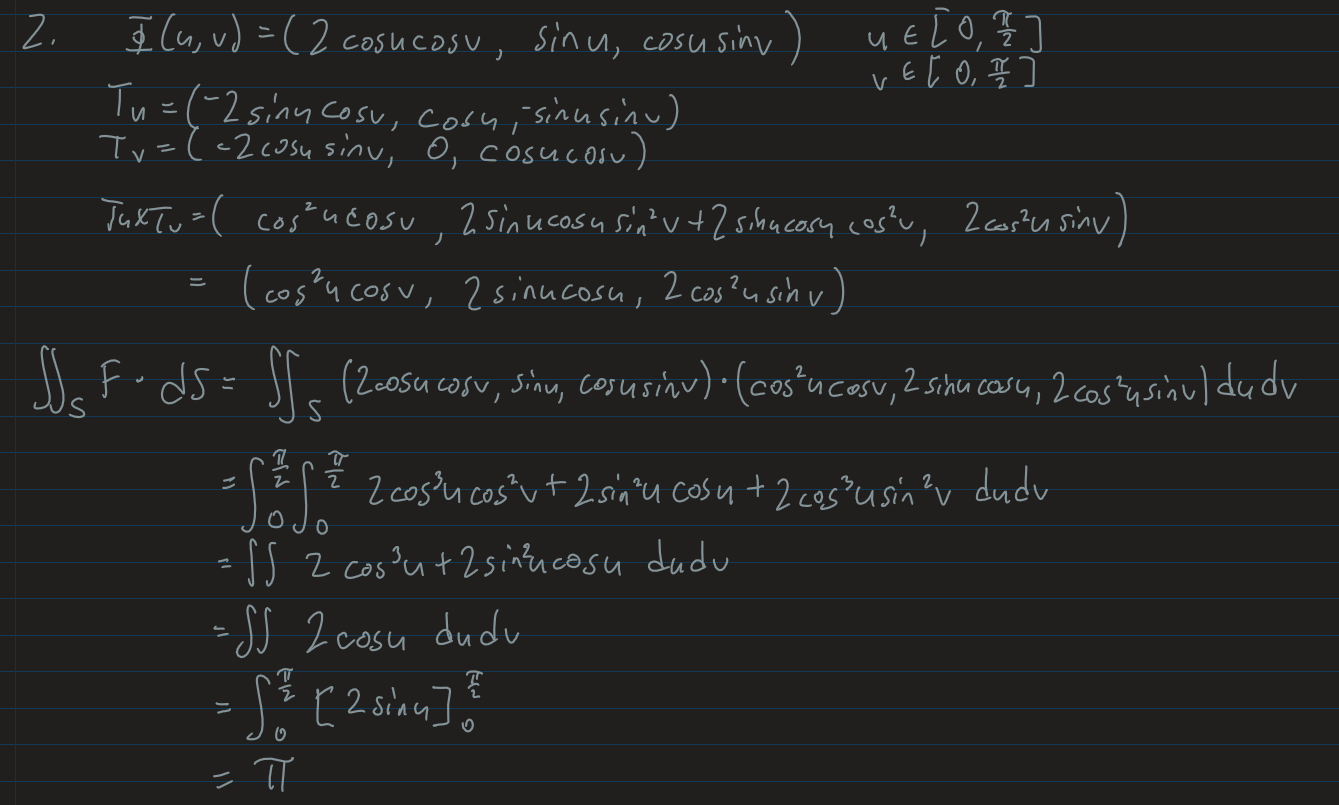 2. Φ(u,v) = (2cosucosv, sinu, cosusinv) u ∈ [0, π/2]
v ∈ [0, π/2]
Tu = (-2sinucosv, cosu, -sinusinv)
Tv = (-2cosusinv, 0, cosucosv)
Tu×Tv = (cos²ucosv, 2sinucosusin²v + 2sinucosucos²v, 2cos²usinv)
= (cos²ucosv, 2sinucosu, 2cos²usinv)
∬_S F · dS = ∬_S (2cosucosv, sinu, cosusinv) · (cos²ucosv, 2sinucosu, 2cos²usinv) dudv
= ∫_0^{π/2} ∫_0^{π/2} 2cos³ucos²v + 2sin²ucosu + 2cos³usin²v dudv
= ∬ 2cos³u + 2sin²ucosu dudv
= ∬ 2cosu dudv
= ∫_0^{π/2} [2sinu]_0^{π/2}
= π